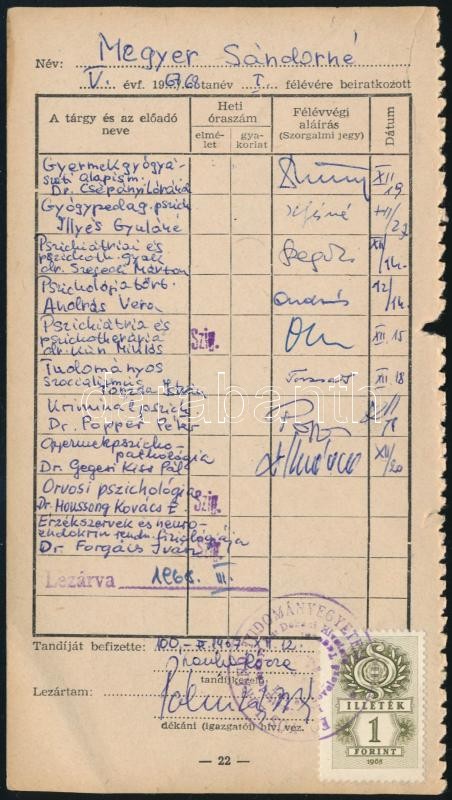 Név: Megyer Sándorné
V. évf. 1967/68 tanév I. félévére beiratkozott
A tárgy és az előadó neve
Heti óraszám
elmélet
gyakorlat
Félévvégi aláírás (Szorgalmi jegy)
Dátum
Gyermekgyógyászati alapism.
Dr. Csepányi Lóránd XII 19
Gyógypedag. pszich
Illyés Gyuláné XII/27
Pszichiátriai és
pszichoth. gyak
dr. Szegedi Márton Szegedi XII/14.
Pszichológiatört.
András Vera András 12/14.
Pszichiátria és
pszichoterápia
dr. Kun Miklós Szig. XII. 15
Tudományos
szocializmus XII 18
Kriminálpszich
Dr. Popper Péter XII
Gyermekpszicho-
pathológia
Dr. Gegesi Kiss Pál XII/20
Orvosi pszichológia
Dr Houssong Kovács E. Szig.
Érzékszervek és neuro-
endokrin rendsz. fiziológiája
Dr. Forgács Iván Szig.
Lezárva 1968. III
Tandíját befizette: 100,- 1967 XII. 12.
tandíjkezelő
Lezártam:
dékáni (igazgatói) hiv. vez.
— 22 —
ILLETÉK
1
FORINT
1965
TUDOMÁNYEGYETEM
darabanth